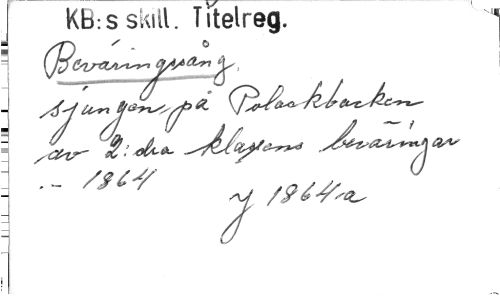 KB:s skill. Titelreg.
Beväringssång,
sjungen på Polackbacken
av 2:dra klassens beväringar
.- 1864
Y 1864 a